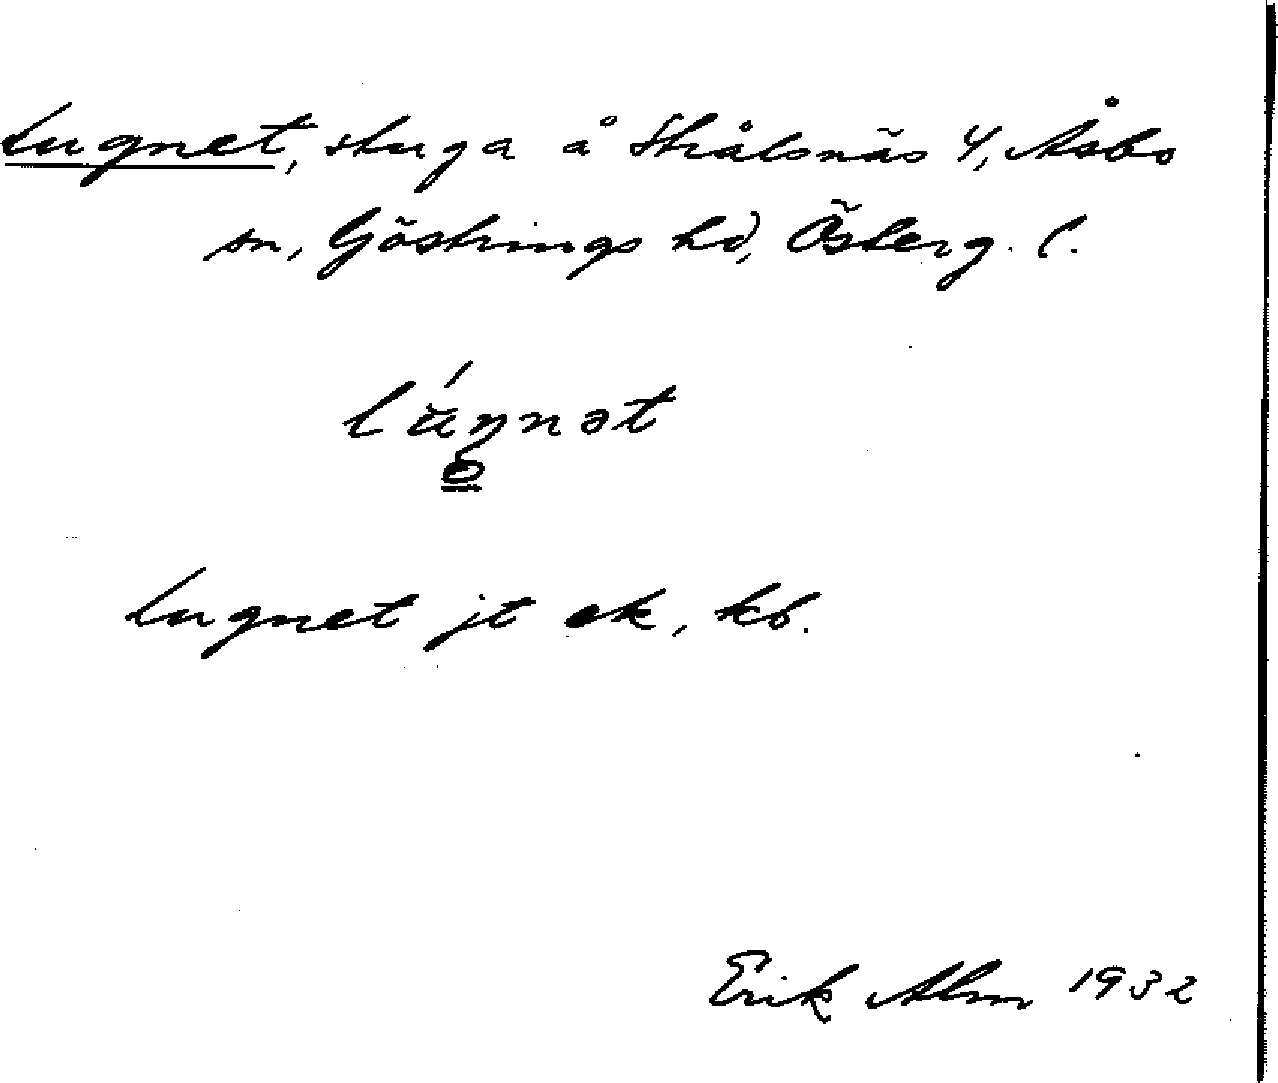 Lugnet, stuga å Strålsnäs 4, Åsbo
sn, Göstrings hd, Österg. l.
Lugnet jt ek, kb.
Erik Alm 1932